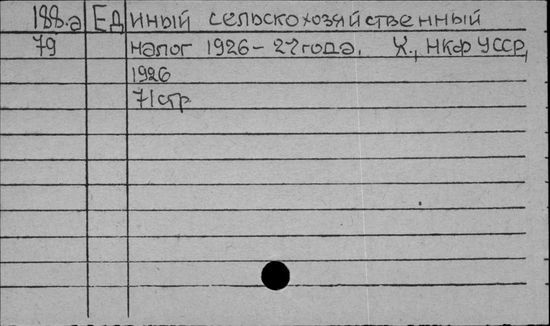 188.а ЕДиный сельскохозяйственный
79 налог 1926-27 года. Х., НКФ УССР,
1926
71 стр